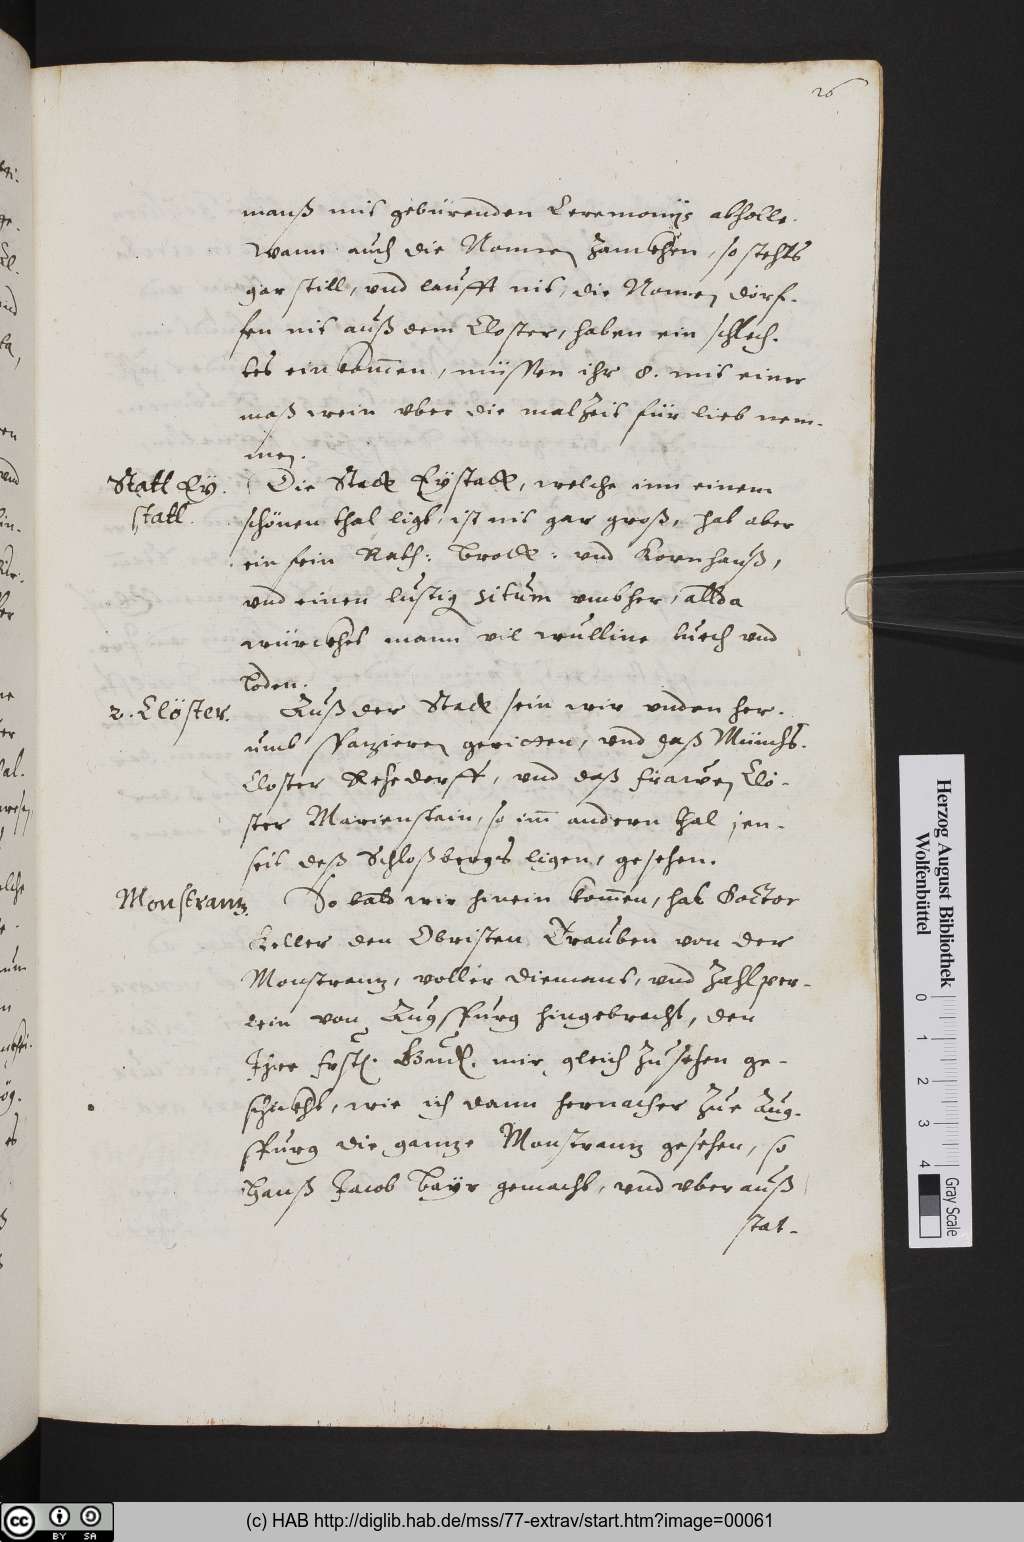 26
mauß mit gebürenden Ceremonijs abholle.
Wann auch die Nonnen zanckhen, so stehts
gar still, vnd laufft nit, die Nonnen dörf-
fen nit auß dem Closter, haben ein schlech-
tes einkommen, müssen ihr 8. mit einer
maß wein vber die malzeit für lieb nem-
men.
Statt Ey-
statt.
Die Statt Eystatt, welche inn einem
schönen thal ligt, ist nit gar groß, hat aber
ein fein Rath: Brott: vnd Kornhauß,
vnd einen lustig situm vmbher, allda
würckhet mann vil wulline tuech vnd
loden.
2. Clöster.
Auß der Statt sein wir vnden her-
umb spazieren geritten, vnd daß Münchs-
Closter Rehedorff, vnd daß frawen Clo-
ster Marienstain, so im andern thal jen-
seit deß Schloßbergs ligen, gesehen.
Monstrantz.
So bald wir hinein kommen, hat Doctor
Keller den Obristen Trauben von der
Monstrantz, voller diemant, vnd Zahlper-
lein von Augspurg hingebracht, den
Ihre frstl. Gnd. mir gleich zu sehen ge-
schickht, wie ich dann hernacher zue Aug-
spurg die gantze Monstrantz gesehen, so
Hanß Jacob Bayr gemacht, vnd vber auß
stat-
Herzog August Bibliothek
Wolfenbüttel
0 1 2 3 4
Gray Scale
cc BY SA
(c) HAB http://diglib.hab.de/mss/77-extrav/start.htm?image=00061